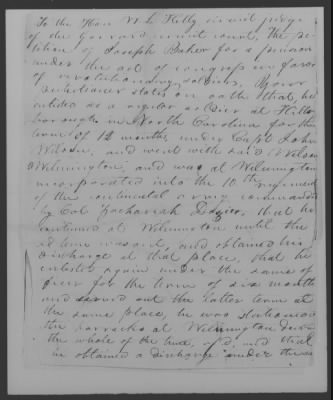 To the Hon. W L Kelly circuit judge
of the Garrard circuit court, The pe
tition of Joseph Baker for a pension
under the act of congress in favor
of revolutionary soldiers, Your
petitioner states on oath that he
enlisted as a regular soldier at Hills
borough in North Carolina for the
term of 12 months under Capt John
Wilson, and went with said Wilson
to Wilmington, and was at Wilmington
incorporated into the 10th regiment
of the continental army commanded
by Col. Zachariah that he
continued at Wilmington until the
time was out, and obtained his
discharge at that place, that he
enlisted again under the same
for the term of six months
and served out the latter term at
the same place, he was
the barracks at Wilmington
the whole of the time, and that
he obtained a discharge under the